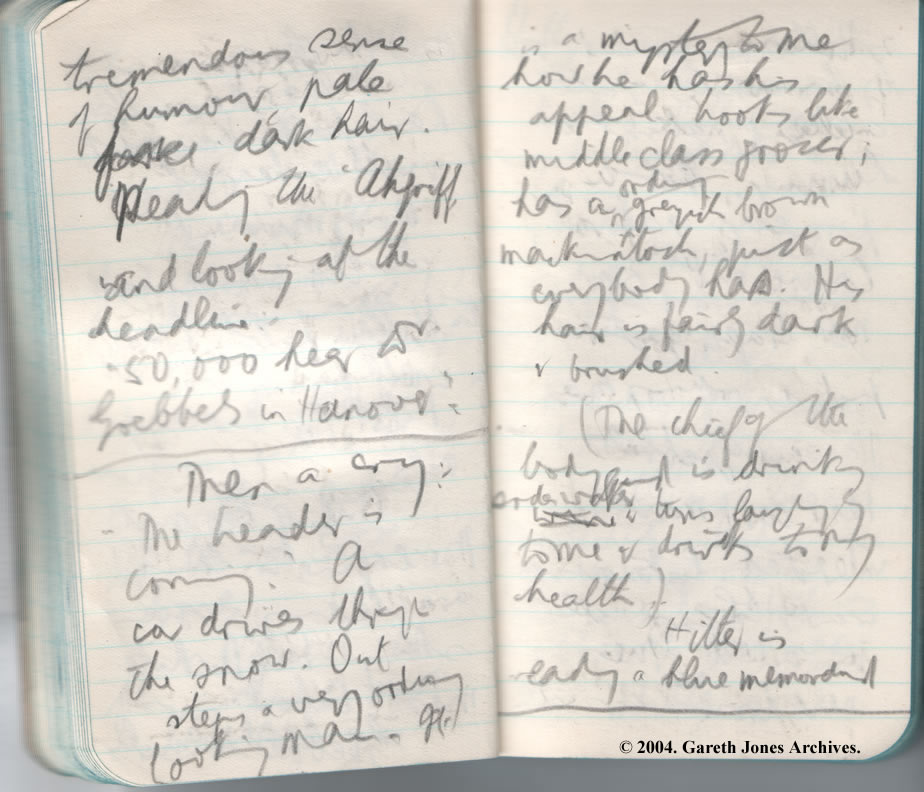 tremendous sense
of humour, pale
dark hair.
Reading the "Angriff
and looking at the
deadline:
"50,000 hear Dr.
Goebbels in Hanover".
Then a cry:
"The Leader is
coming." A
car drives through
the snow. Out
steps a very ordinary
looking man. It
is a mystery to me
how he has his
appeal. Looks like
middle class grocer;
has a ordinary greyish brown
mackintosh, just as
everybody has. His
hair is fairly dark
& brushed.
(The chief of the
bodyguard is drinking
soda water & turns laughingly
to me & drinks to my
health.)
Hitler is
reading a blue memorandum
© 2004. Gareth Jones Archives.